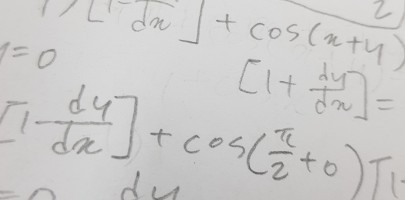 ) [1-  /dx] + cos(x+y)
=0
[1+ dy/dx] =
[1- dy/dx] + cos(π/2+0) [1-
=0 dy